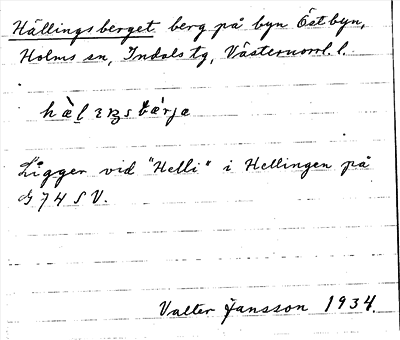 Hällingsberget berg på byn Östbyn,
Holms sn, Indals tg, Västernorrl. l.
Ligger vid "Helli" i Hellingen på
74 SV.
Valter Jansson 1934.